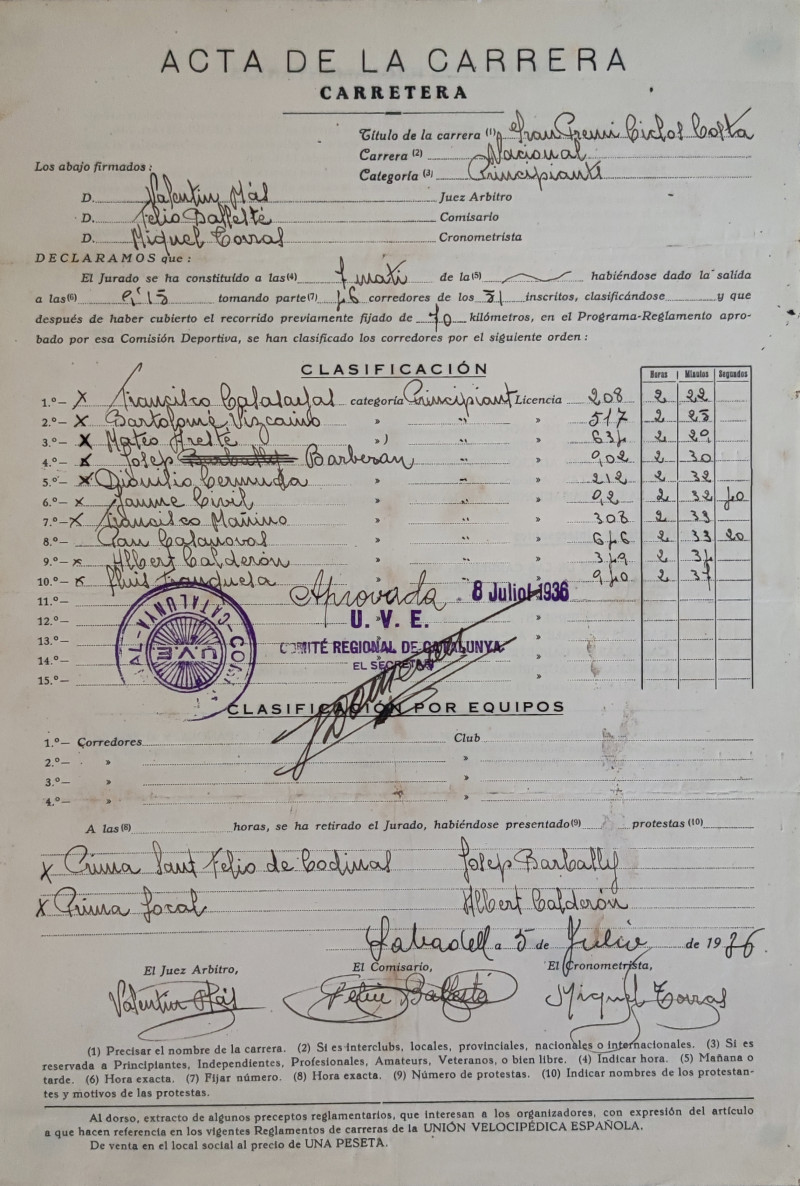 ACTA DE LA CARRERA
CARRETERA
Título de la carrera (1) Gran Premi Ciclos Costa
Carrera (2) Nacional
Categoría (3) Principiants
Los abajo firmados:
D. Valentin Más Juez Arbitro
D. Felio Ballesté Comisario
D. Miquel Torras Cronometrista
DECLARAMOS que:
El Jurado se ha constituído a las(4) 7 mati de la(5) habiéndose dado la salida
a las(6) 9'15 tomando parte(7) corredores de los 31 inscritos, clasificándose y que
después de haber cubierto el recorrido previamente fijado de 70 kilómetros, en el Programa-Reglamento apro-
bado por esa Comisión Deportiva, se han clasificado los corredores por el siguiente orden:
CLASIFICACIÓN
Horas Minutos Segundos
1.º— X Francisco categoría Principiant Licencia 208 2 22
2.º— X Bartolomé Vizcaino » » » 517 2 23
3.º— X Mateo » » » 2 29
4.º— X Josep Barberan » » » 902 2 30
5.º— X Cermuda » » » 212 2 32
6.º— X Jaume Civil » » » 92 2 32
7.º— X Francisco Mañino » » » 308 2 33
8.º— Casanovas » » » 2 33 20
9.º— X Albert Calderón » » » 2
10.º— X Lluis » » » 2
11.º— Aprovada 8 Juliol 1936
12.º— U. V. E. »
13.º— COMITÉ REGIONAL DE CATALUNYA »
14.º— EL SECRETARI »
15.º— »
U.V.E.
CLASIFICACIÓN POR EQUIPOS
1.º— Corredores Club
2.º— » »
3.º— » »
4.º— » »
A las(8) horas, se ha retirado el Jurado, habiéndose presentado(9) protestas(10)
X Prima Sant Felio de Codinas Josep Barbally
X Prima Local Albert Calderón
Sabadell a 5 de Julio de 1936.
El Juez Arbitro, El Comisario, El Cronometrista,
Valentin Más Felio Ballesté Miquel Torras
(1) Precisar el nombre de la carrera. (2) Si es interclubs, locales, provinciales, nacionales o internacionales. (3) Si es
reservada a Principiantes, Independientes, Profesionales, Amateurs, Veteranos, o bien libre. (4) Indicar hora. (5) Mañana o
tarde. (6) Hora exacta. (7) Fijar número. (8) Hora exacta. (9) Número de protestas. (10) Indicar nombres de los protestan-
tes y motivos de las protestas.
Al dorso, extracto de algunos preceptos reglamentarios, que interesan a los organizadores, con expresión del artículo
a que hacen referencia en los vigentes Reglamentos de carreras de la UNIÓN VELOCIPÉDICA ESPAÑOLA.
De venta en el local social al precio de UNA PESETA.